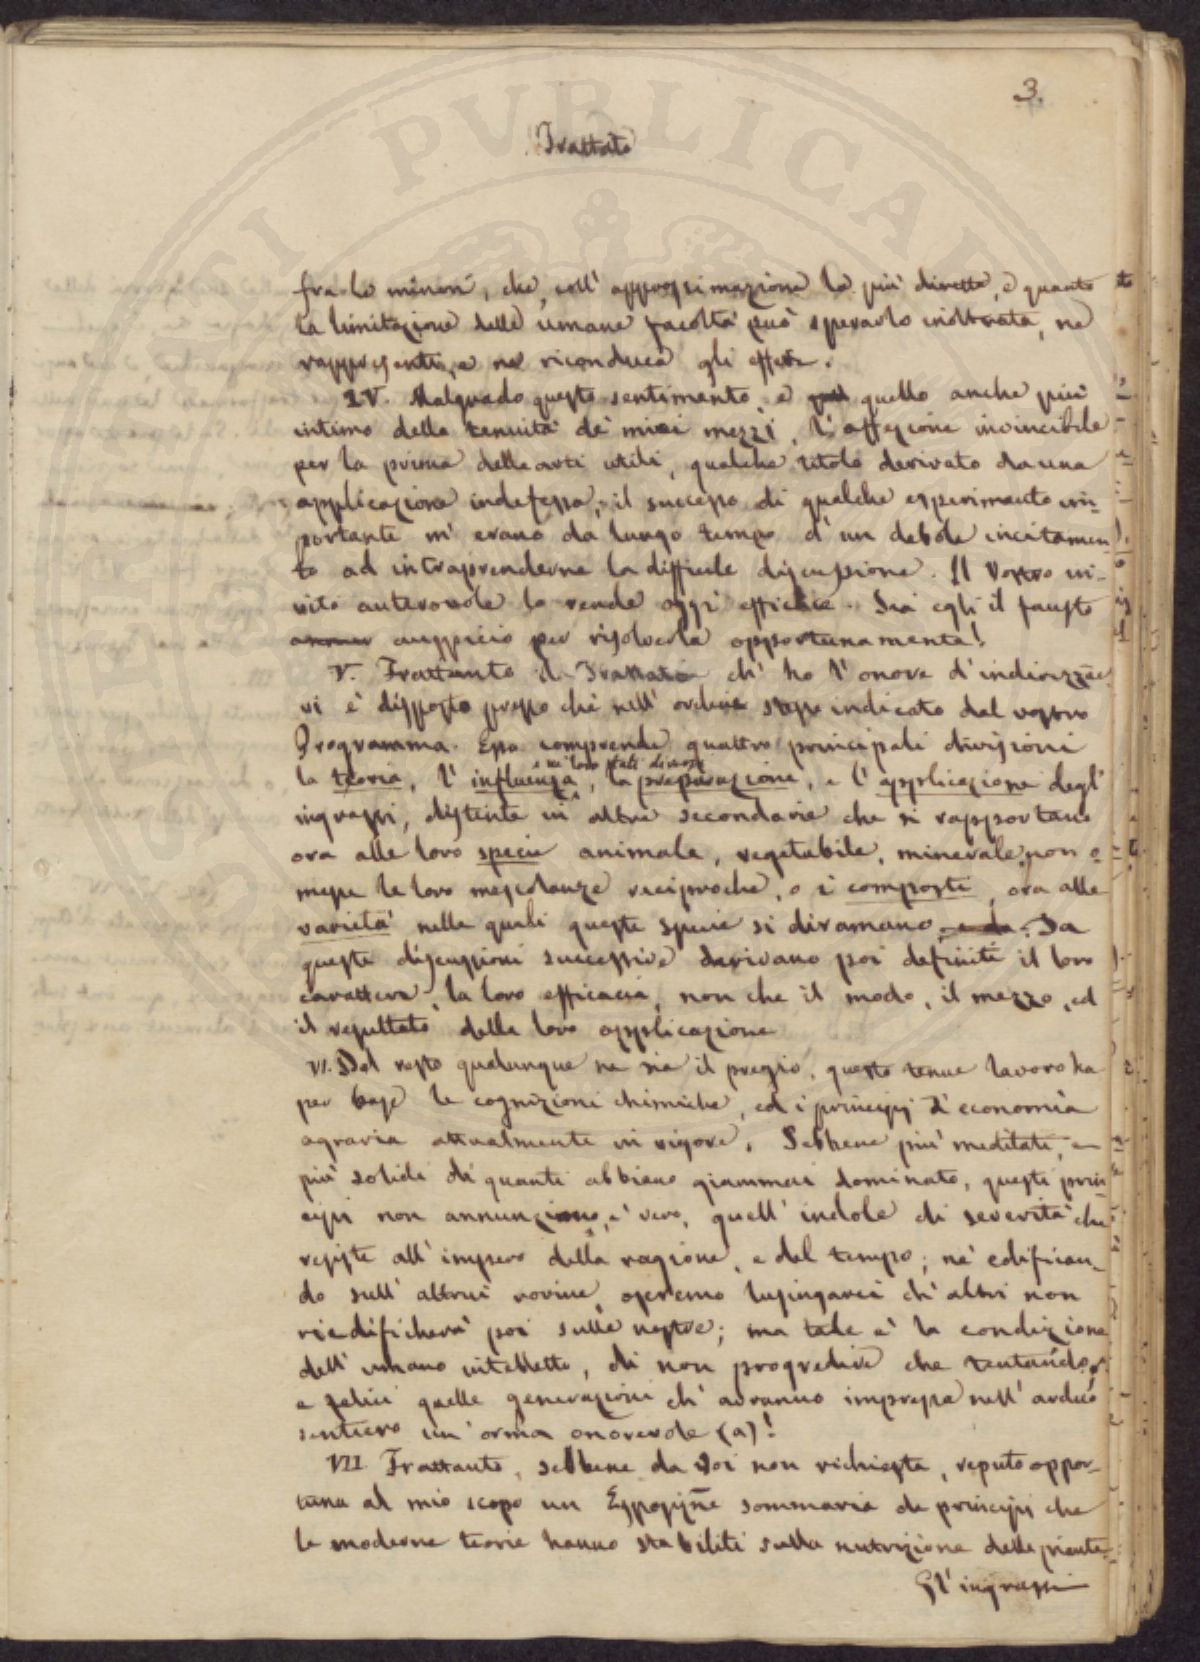 3.
Trattato
fra le minori, che, coll' approssimazione la più diretta, e quanto
la limitazione delle umane facoltà può sperarlo inoltrata, ne
rappresenti, e ne riconduca gli effetti.
IV. Malgrado questo sentimento, e quello anche più
intimo della tenuità de' miei mezzi, l'affezione invincibile
per la prima delle arti utili, qualche titolo derivato da una
applicazione indefessa, il successo di qualche esperimento im-
portante m' erano da lungo tempo d' un debole incitamen-
to ad intraprenderne la difficile discussione. Il Vostro in-
vito autorevole lo rende oggi efficace. Sia egli il fausto
auspicio per risolverla opportunamente!
V. Frattanto il Trattato ch' ho l' onore d' indirizzar-
vi è disposto presso chè nell' ordine stesso indicato dal vostro
Programma. Esso comprende quattro principali divisioni
e ne' loro stati diversi
la teoria, l' influenza, la preparazione, e l' applicazione degl'
ingrassi, distente in altre secondarie che si rapportano
ora alle loro specie animale, vegetabile, minerale, non o-
messe le loro mescolanze reciproche, o i composti, ora alle
varietà nelle quali queste specie si diramano. Da
queste discussioni successive derivano poi definiti il loro
carattere, la loro efficacia, non che il modo, il mezzo, ed
il resultato della loro applicazione
VI. Del resto qualunque ne sia il pregio, questo tenue lavoro ha
per base le cognizioni chimiche, ed i principj d' economia
agraria attualmente in vigore. Sebbene più meditati, e
più solidi di quanti abbiano giammai dominato, questi prin-
cipj non annunziano, è vero, quell' indole di severità che
resiste all' impero della ragione, e del tempo; nè edifican-
do sull' altrui rovine, oseremo lusingarci ch' altri non
riedificherà poi sulle nostre; ma tale è la condizione
dell' umano intelletto, di non progredire che tentando,
e felici quelle generazioni ch' avranno impressa nell' arduo
sentiero un' orma onorevole (a)!
VII. Frattanto, sebbene da Voi non richiesta, reputo oppor-
tuna al mio scopo un Esposizne sommaria de principj che
le moderne teorie hanno stabiliti sulla nutrizione delle piante.
Gl' ingrassi